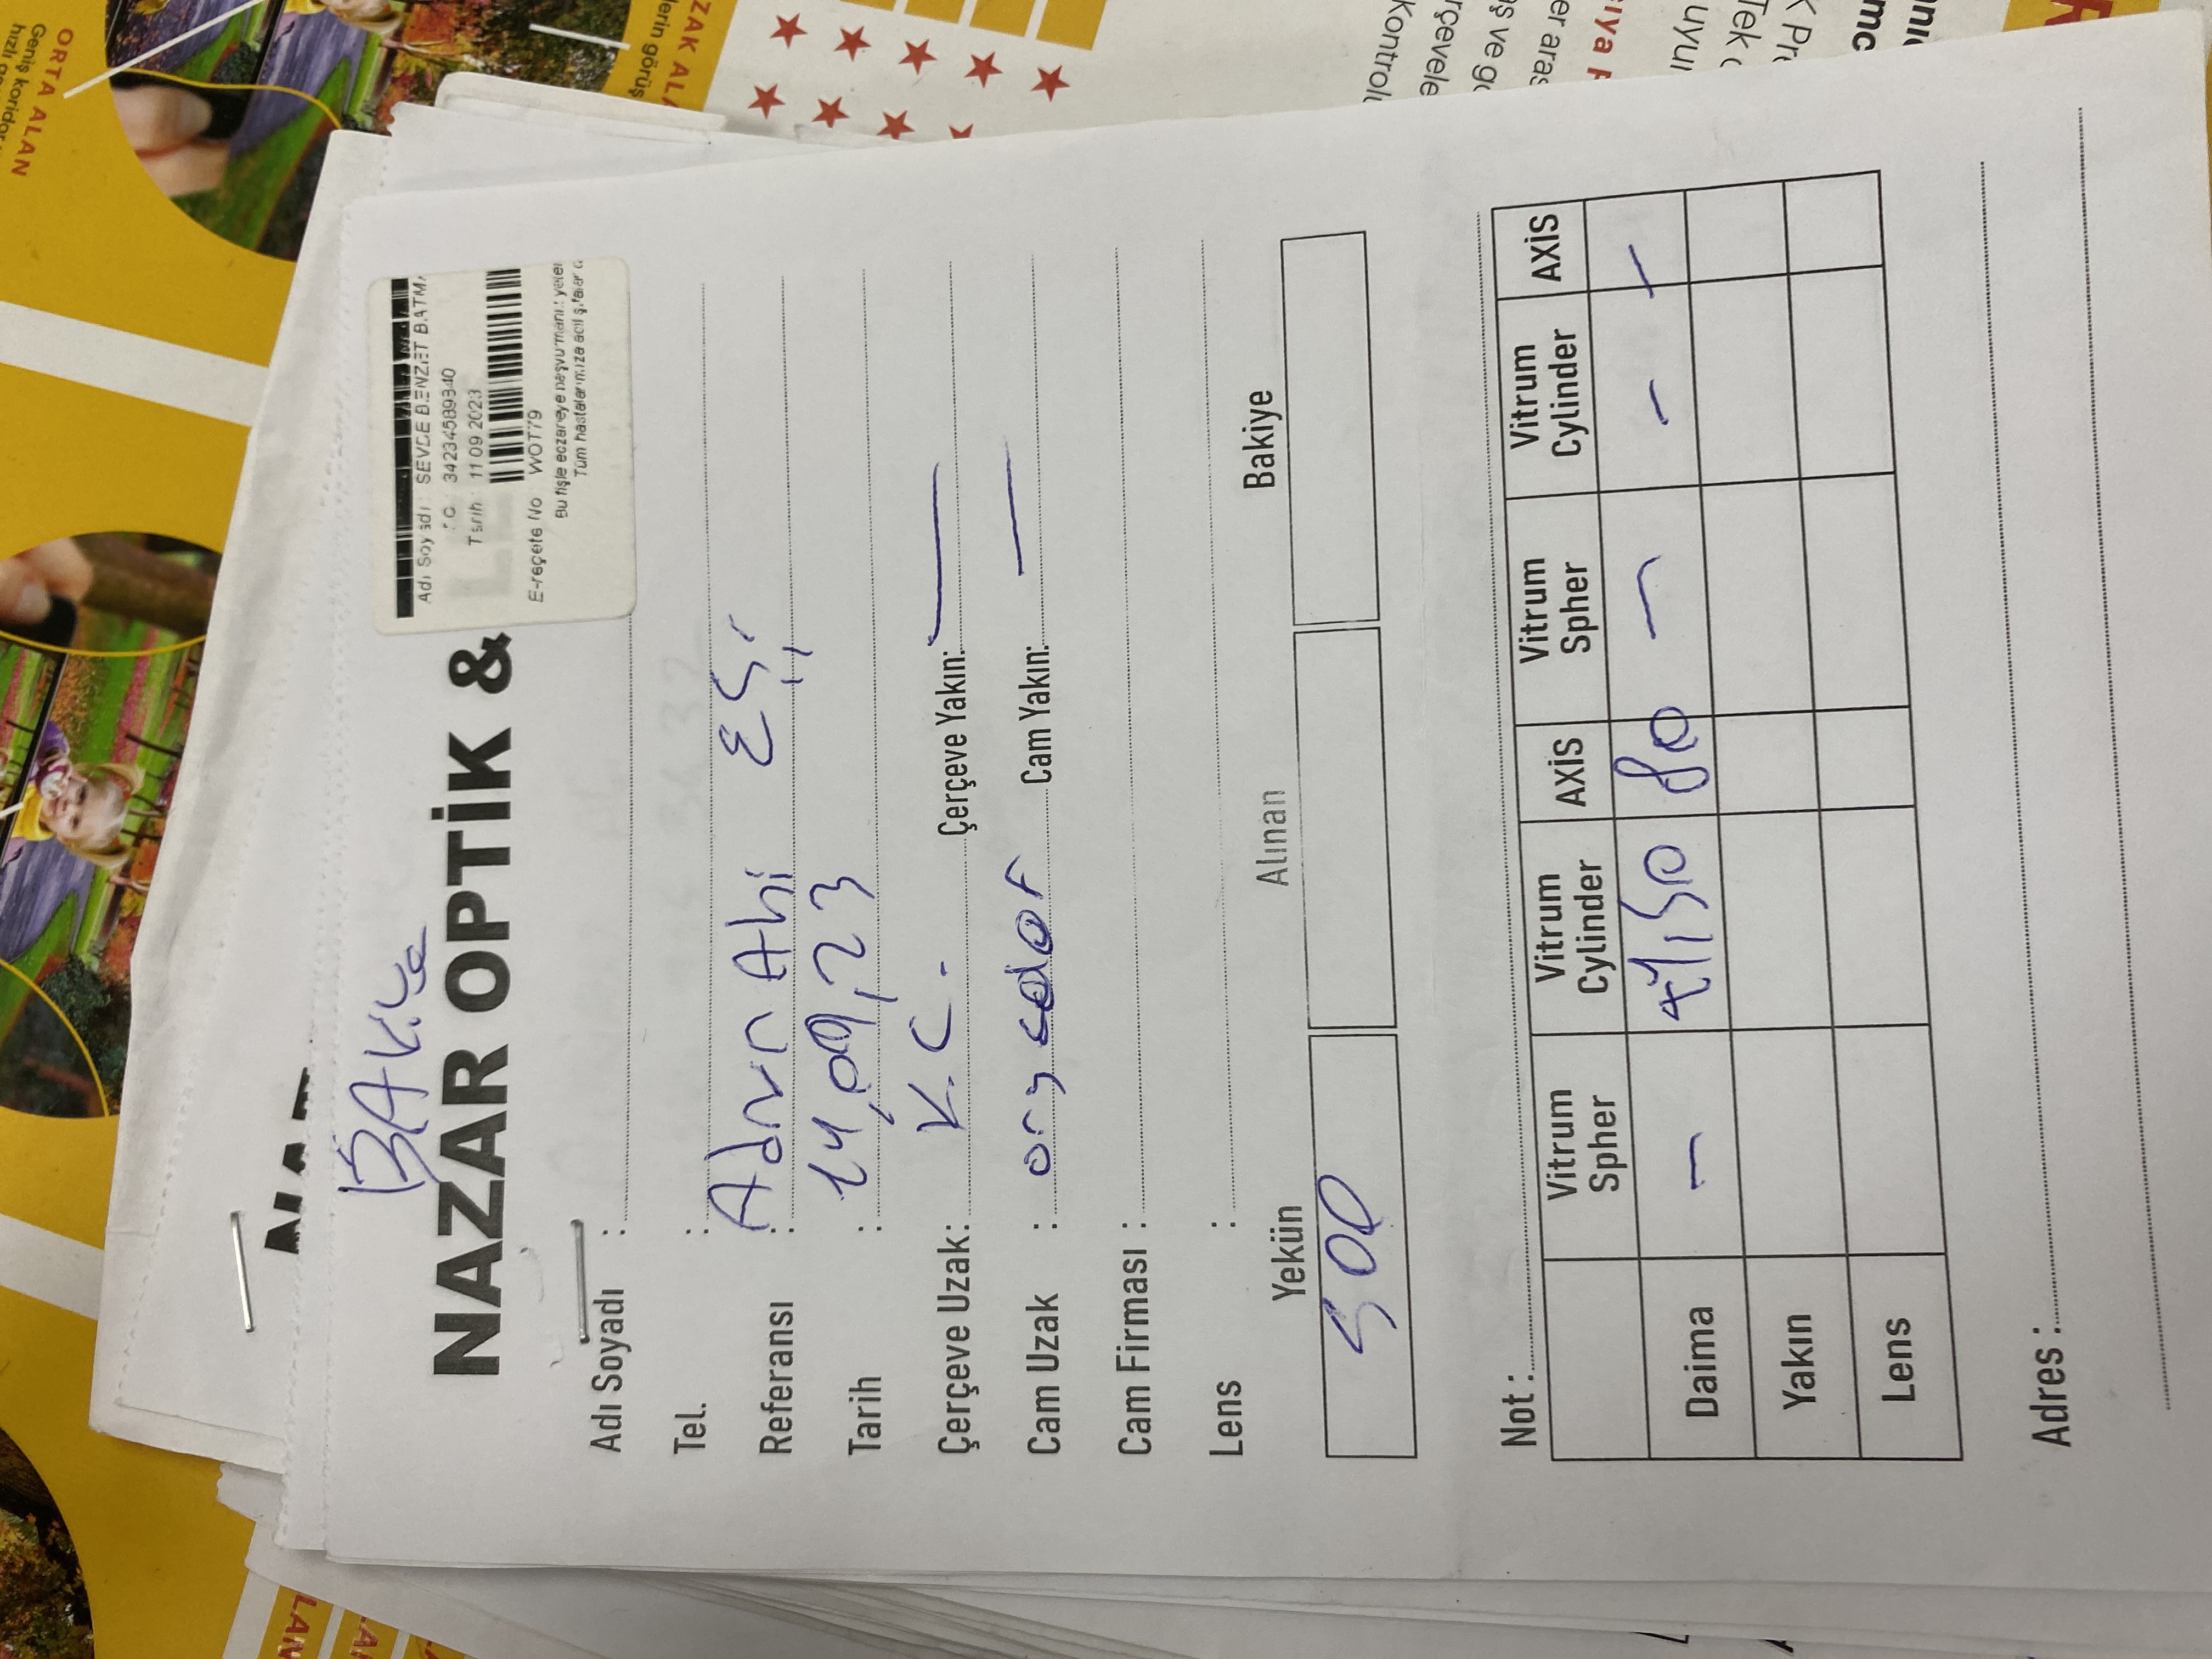 BAKiye
NAZAR OPTİK &
Adı Soyadı : SEVDE BENZET BATMA
TC : 34234589340
Tarih : 11 09 2023
E-reçete No WOT79
Bu fişle eczaneye başvurmanız yeter
Tüm hastalarımıza acil şifalar d
Adı Soyadı :
Tel. :
Referansı : Adnan Abi Eşi
Tarih : 14,09,23
Çerçeve Uzak: K.C. Çerçeve Yakın: —
Cam Uzak : org Cam Yakın: —
Cam Firması :
Lens :
Yekün Alınan Bakiye
500
Not :
Vitrum Spher Vitrum Cylinder AXİS Vitrum Spher Vitrum Cylinder AXİS
Daima — +1,50 80 — — —
Yakın
Lens
Adres :
ORTA ALAN
Geniş koridor
hızlı